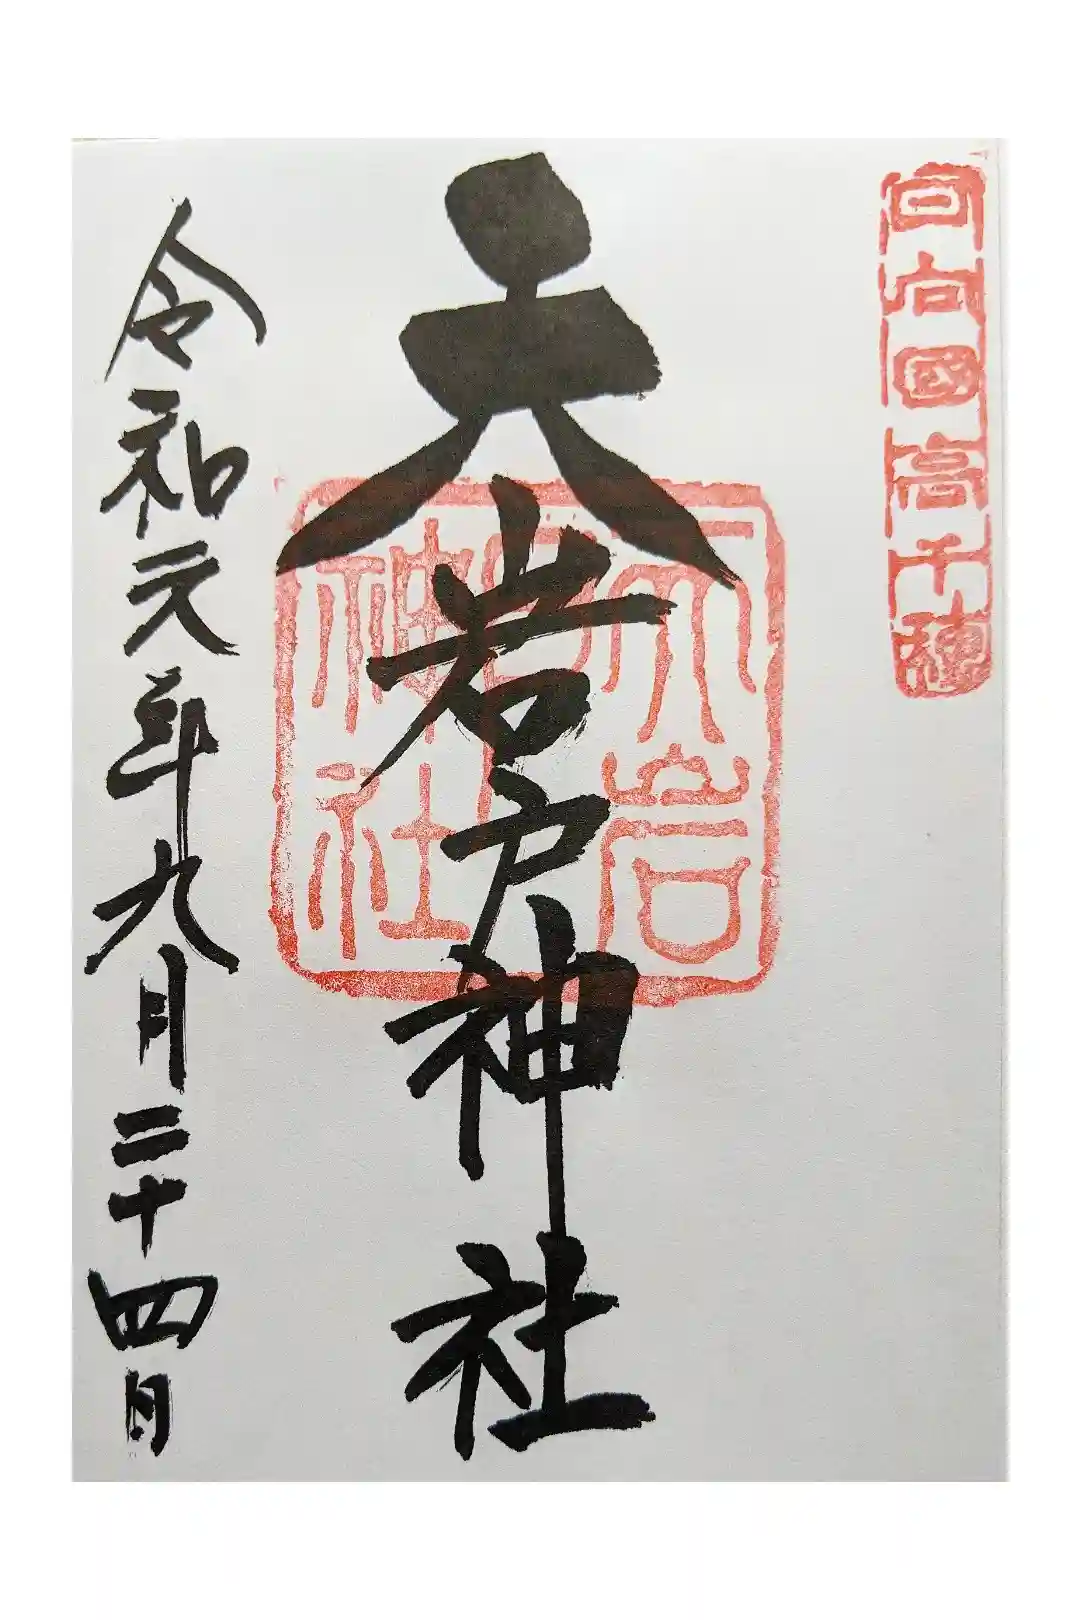 日向國高千穂
天岩戸神社
天岩戸神社
令和元年九月二十四日